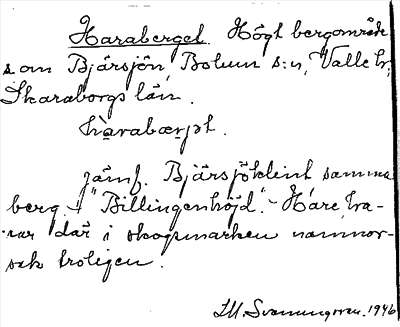 Haraberget. Högt bergområde
s om Bjärsjön, Bolum s:n, Valle hd,
Skaraborgs län.
hàrabærjət.
jämf. Bjärsjöklint samma
berg + "Billingenhöjd." - Hare, ha-
rar där i skogsmarken namnor-
sak troligen.
M. Svenungsson. 1946